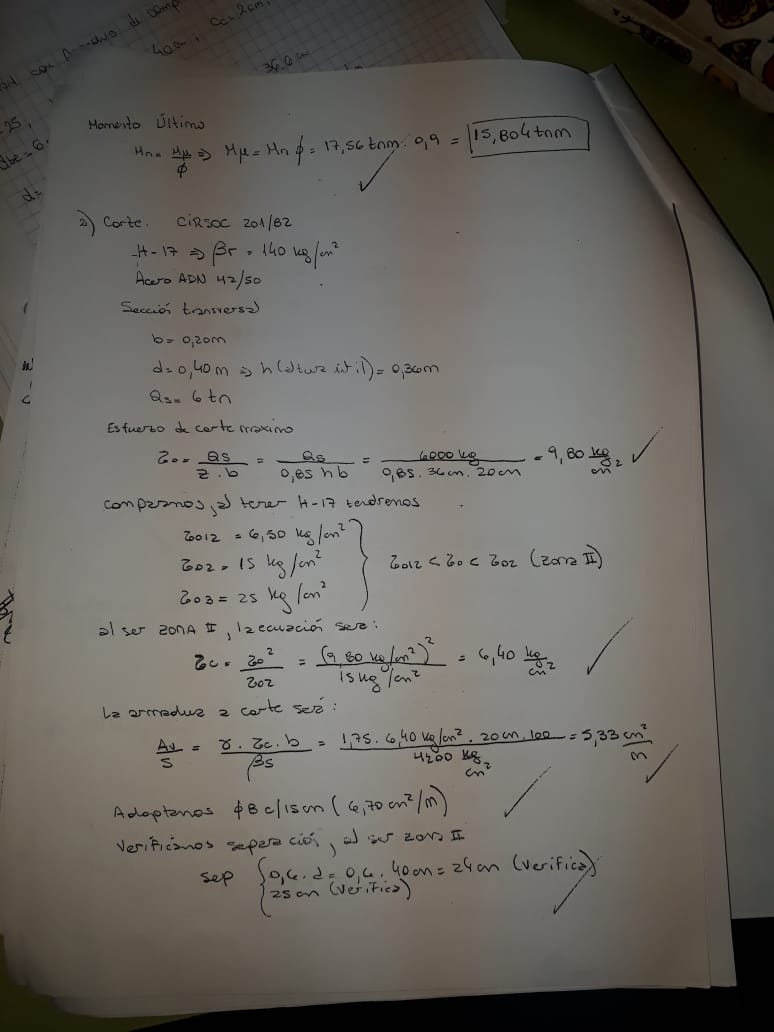 con
40cm,
36.0 cm
25,
d=
Momento Último
Mn = Mμ/ϕ ⇒ Mμ = Mn ϕ = 17,56 tnm . 0,9 = 15,804 tnm
2) Corte. CIRSOC 201/82
H-17 ⇒ βr = 140 kg/cm²
Acero ADN 42/50
Sección transversal
b = 0,20m
d = 0,40m ⇒ h (altura útil) = 0,36m
Qs = 6 tn
Esfuerzo de corte máximo
τo = Qs/z.b = Qs/0,85 h b = 6000 kg/0,85 . 36cm . 20cm = 9,80 kg/cm²
comparamos, al tener H-17 tendremos
τ012 = 6,50 kg/cm²
τ02 = 15 kg/cm²
τ03 = 25 kg/cm²
τ012 < τo < τ02 (zona II)
al ser ZONA II, la ecuación será:
τc = τo²/τ02 = (9,80 kg/cm²)²/15 kg/cm² = 6,40 kg/cm²
La armadura a corte será:
Av/s = γ . τc . b/βs = 1,75 . 6,40 kg/cm² . 20cm . 100/4200 kg/cm² = 5,33 cm²/m
Adoptamos ϕ8 c/15cm (6,70 cm²/m)
Verificamos separación, al ser zona II
sep { 0,6 . d = 0,6 . 40cm = 24cm (verifica)
25cm (verifica)